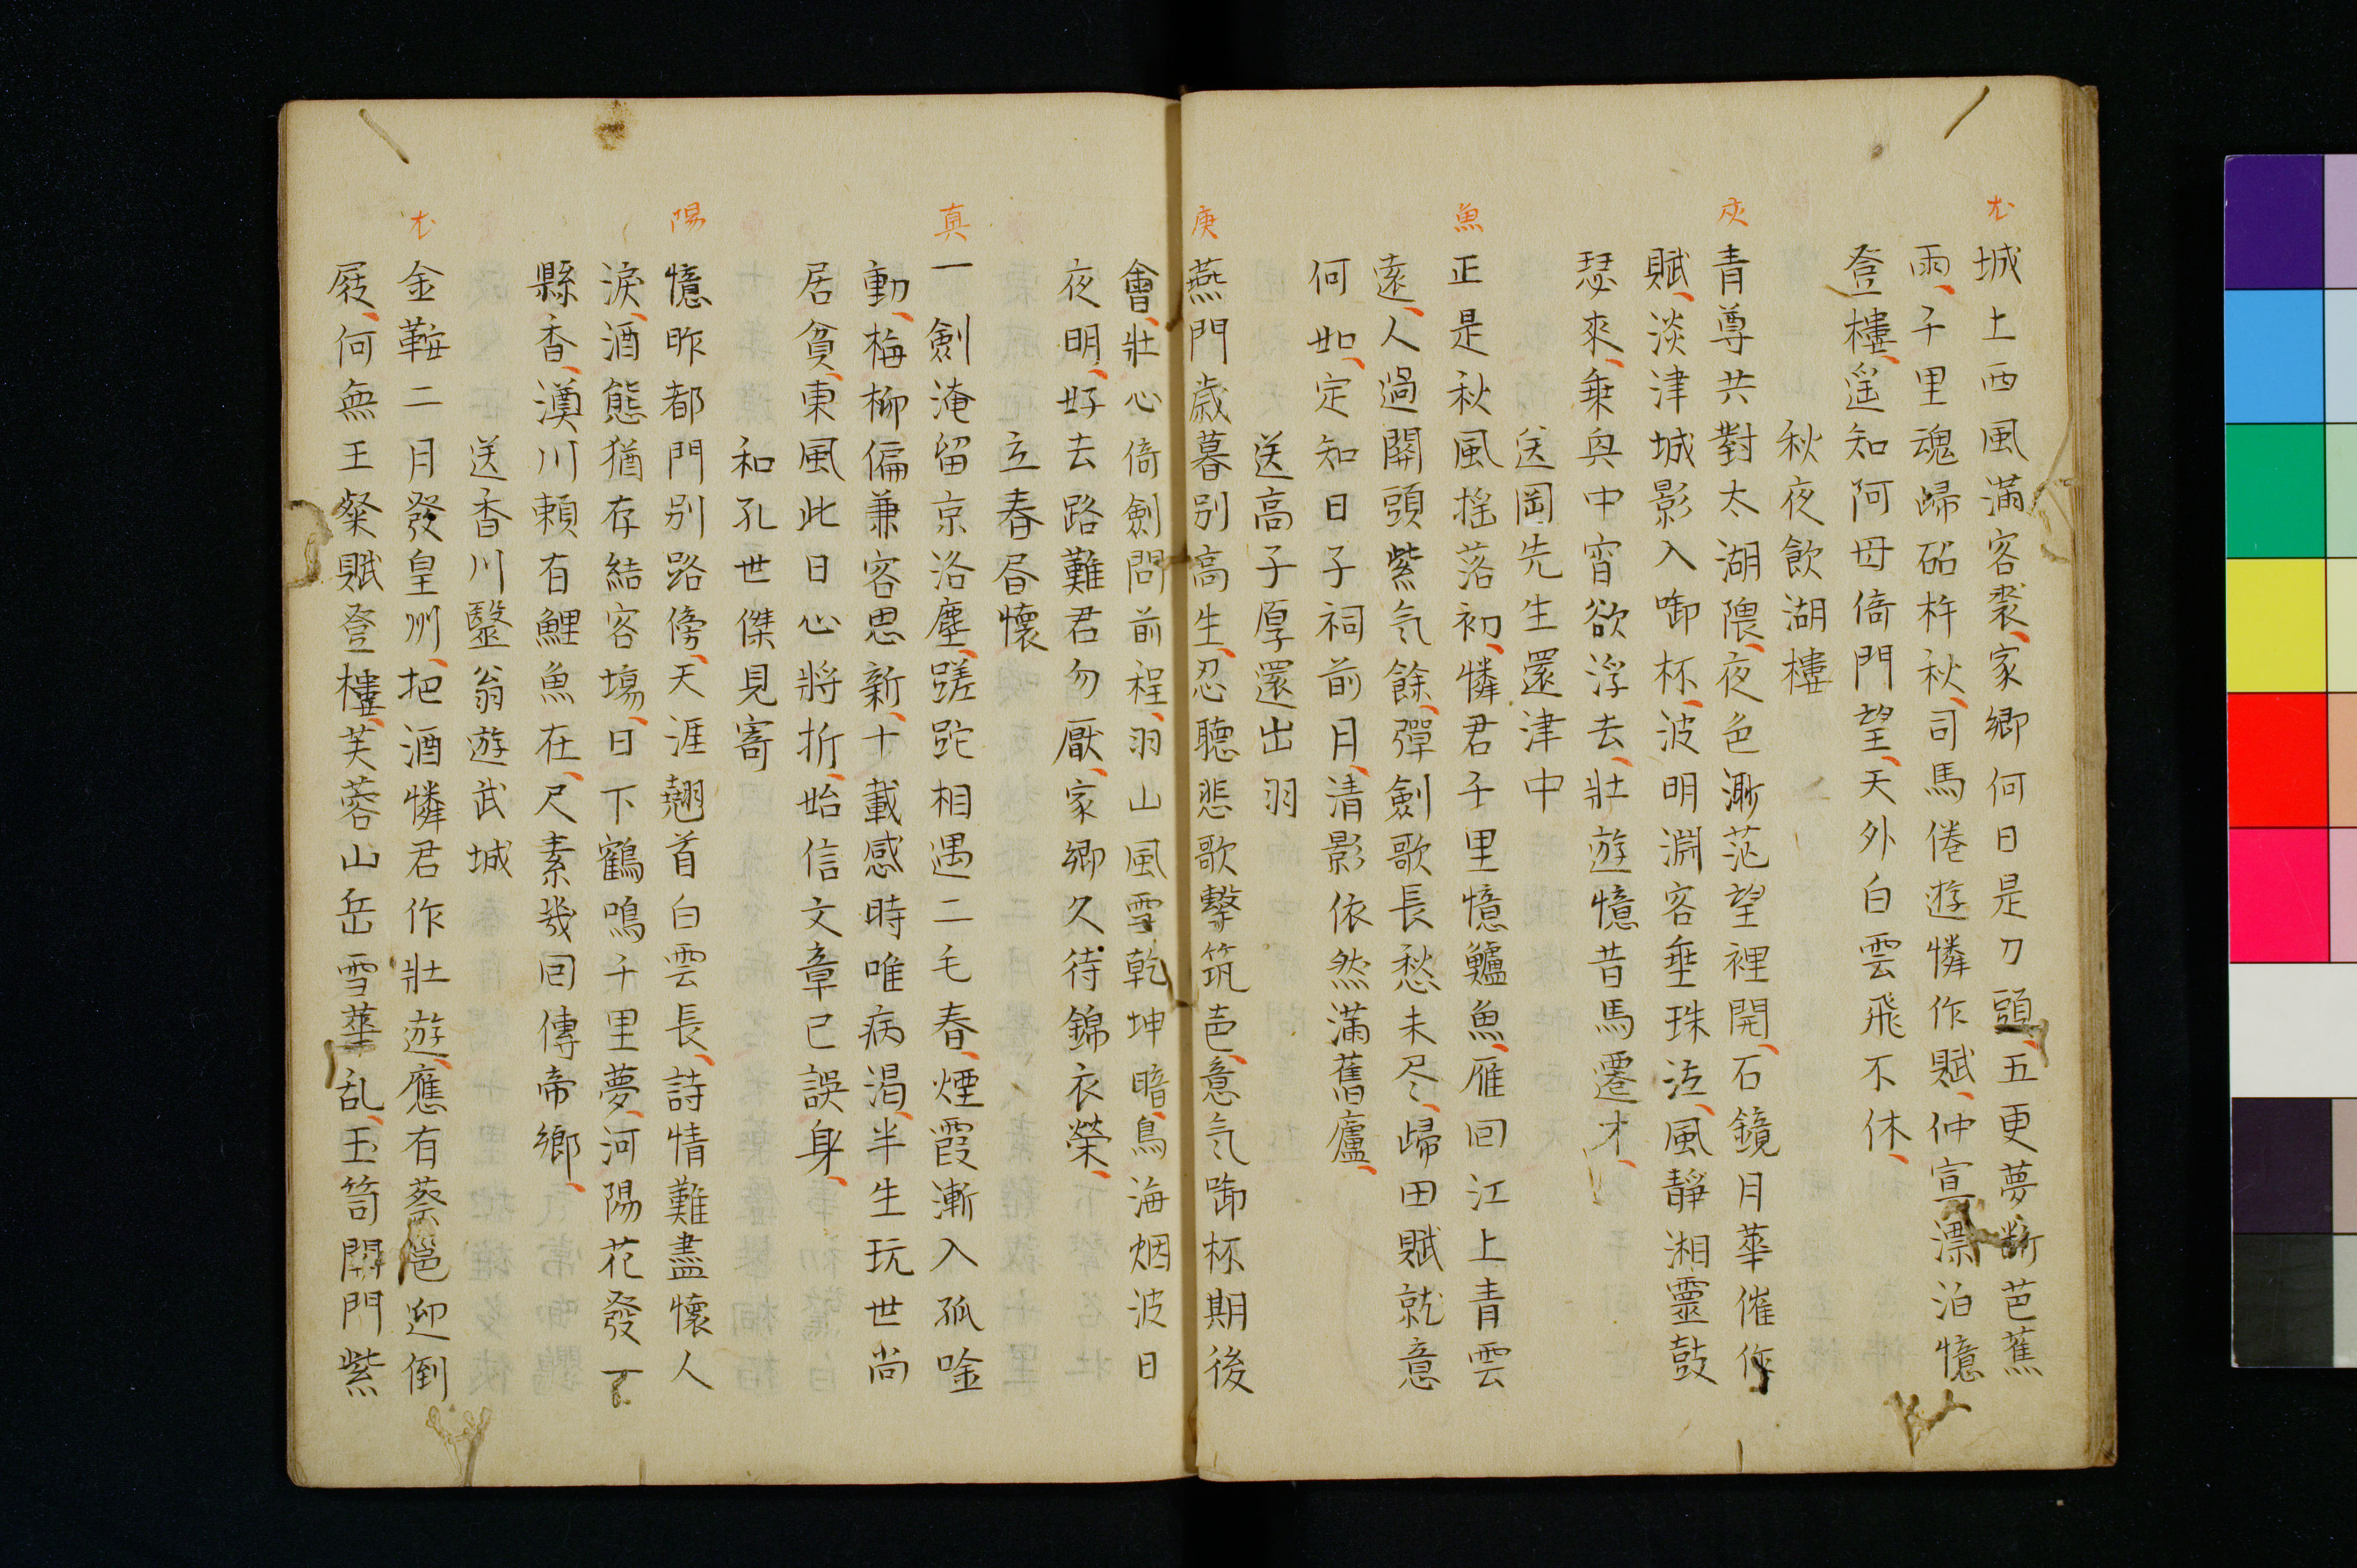 尤
城上西風滿客裘、家鄉何日是刀頭、五更夢斷芭蕉
雨、千里魂歸砧杵秋、司馬倦遊憐作賦、仲宣漂泊憶
登樓、遥知阿母倚門望、天外白雲飛不休、
秋夜飲湖樓
灰
青尊共對太湖隈、夜色渺茫望裡開、石鏡月華催作
賦、淡津城影入啣杯、波明淵客垂珠泣、風靜湘靈鼓
瑟來、乗與中宵欲浮去、壯遊憶昔馬遷才、
送岡先生還津中
魚
正是秋風搖落初、憐君千里憶鱸魚、雁回江上青雲
遠、人過關頭紫气餘、彈劍歌長愁未尽、歸田賦就意
何如、定知日子祠前月、清影依然滿舊廬、
送高子厚還出羽
庚
燕門歲暮別高生、忍聽悲歌擊筑邑、意气啣杯期後
會、壯心倚劍問前程、羽山風雪乾坤暗、鳥海烟波日
夜明、好去路難君勿厭、家鄉久待錦衣榮、
立春居懷
真
一劍淹留京洛塵、蹉跎相遇二毛春、煙霞漸入孤唫
動、梅柳偏兼客思新、十載感時唯病渴、半生玩世尚
居貧、東風此日心將折、始信文章已誤身、
和孔世傑見寄
陽
憶昨都門別路傍、天涯翹首白雲長、詩情難盡懷人
淚、酒態猶存結客場、日下鶴鳴千里夢、河陽花發一
縣香、漢川頼有鯉魚在、尺素幾回傳帝鄉、
送香川毉翁遊武城
尤
金鞍二月發皇州、把酒憐君作壯遊、應有蔡邕迎倒
屐、何無王粲賦登樓、芙蓉山岳雪華乱、玉笥關門紫